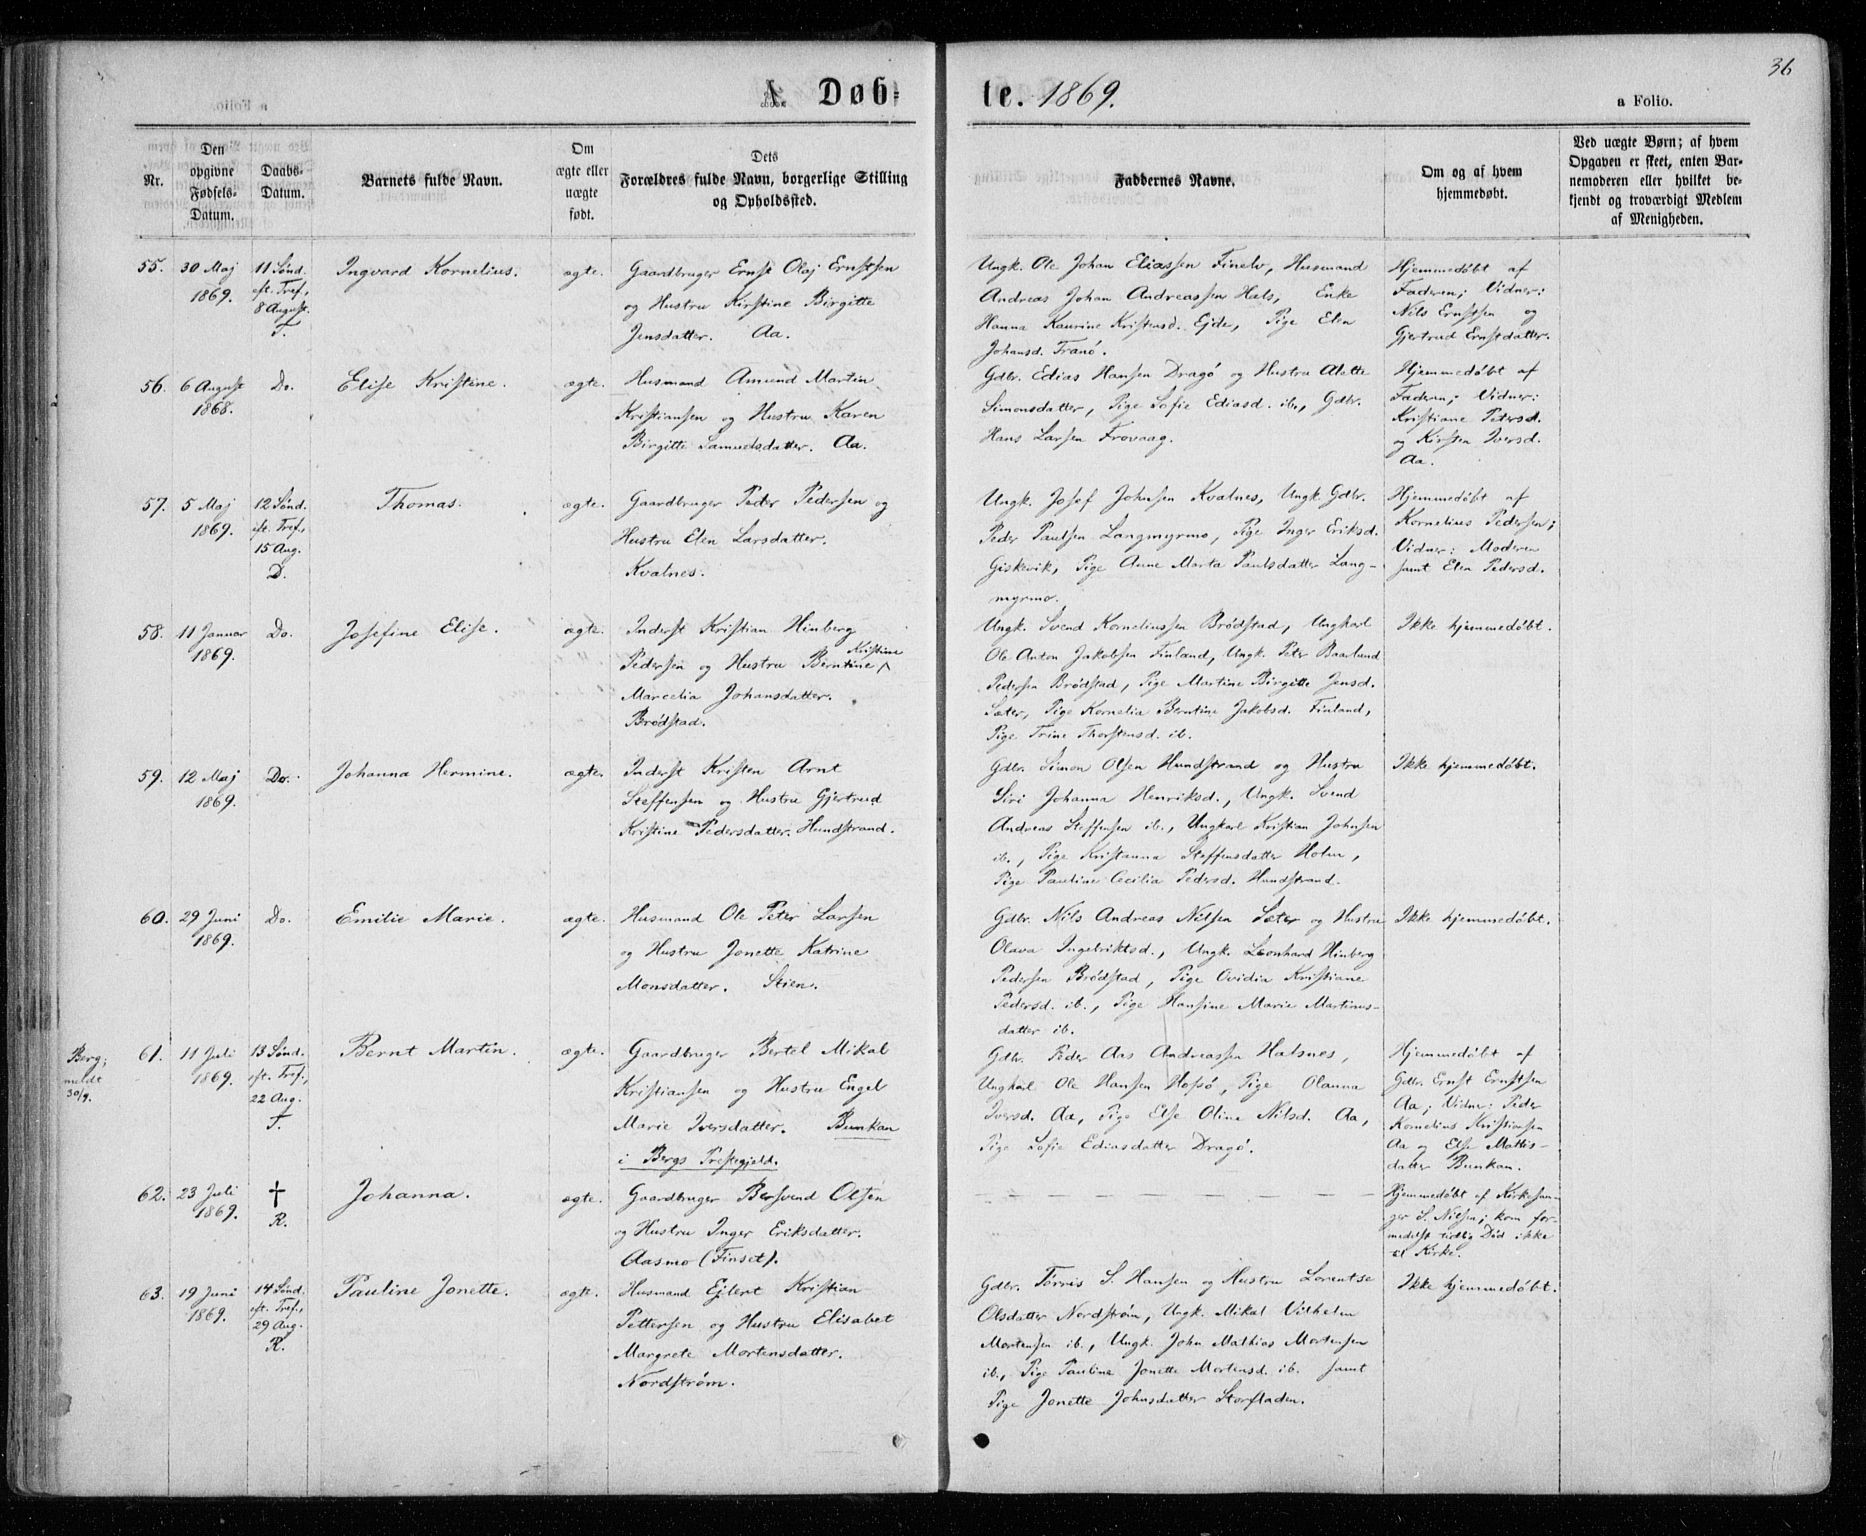 36
A. Døbte. 1869.
a Folio.
Nr.
Den opgivne Fødsels-Datum.
Daabs-Datum.
Barnets fulde Navn.
Om ægte eller uægte født.
Dets Forældres fulde Navn, borgerlige Stilling og Opholdssted.
Faddernes Navne.
Om og af hvem hjemmedøbt.
Ved uægte Børn; af hvem Opgaven er skeet, enten Barnemoderen eller hvilket bekjendt og troværdigt Medlem af Menigheden.
55.
30 Maj
1869.
11 Sönd.
eft. Tref.,
8 August.
T.
Ingvard Kornelius.
ægte.
Gaardbruger Ernst Olaj Ernstsen
og Hustru Kirstine Birgitte
Jensdatter. Aa.
Ungk. Ole Johan Eliassen Finelv, Husmand
Andreas Johan Andreassen Hals, Enke
Hanna Kaurine Kristensd. Ejde, Pige Elen
Johansd. Tranö.
Hjemmedöbt af
Faderen; Vidner:
Nils Ernstsen og
Gjertrud Ernstdatter.
56.
6 August
1868.
Do.
Elise Kristine.
ægte.
Husmand Amund Martin
Kristiansen og Hustru Karen
Birgitte Samuelsdatter. Aa.
Gdbr. Edias Hansen Dragö og Hustru Alette
Simonsdatter, Pige Sofie Ediasd. ib., Gdbr.
Hans Larsen Frovaag.
Hjemmedöbt af
Faderen; Vidner:
Kristiane Petersd.
og Kirsten Iversd.
Aa.
57.
5 Maj
1869.
12 Sönd.
eft. Tref.,
15 Aug.
D.
Thomas.
ægte.
Gaardbruger Peder Pedersen og
Hustru Elen Larsdatter.
Kvalnes.
Ungk. Josef Johnsen Kvalnes, Ungk. Gdbr.
Peder Paulsen Langmyrmo, Pige Inger Eriksd.
Giskevik, Pige Anne Marta Paulsdatter Lang-
myrmo.
Hjemmedöbt af
Kornelius Pedersen;
Vidner: Moderen
samt Elen Pedersd.
58.
11 Januar
1869.
Do.
Josefine Elise.
ægte.
Inderst Kristian Hinberg
Pedersen og Hustru Berntine Kristine
Marcelia Johansdatter.
Brödstad.
Ungk. Svend Korneliussen Brödstad, Ungkarl
Ole Anton Jakobsen Finland, Ungk. Peter Baarlund
Pedersen Brödstad, Pige Martine Birgitte Jensd.
Sæter, Pige Kornelia Berntine Jakobsd. Finland,
Pige Trine Thorstensd. ib.
Ikke hjemmedöbt.
59.
12 Maj
1869.
Do.
Johanna Hermine.
ægte.
Inderst Kristen Arnt
Steffensen og Hustru Gjertrud
Kristine Pedersdatter. Hundstrand.
Gdbr. Simon Olsen Hundstrand og Hustru
Siri Johanna Henriksd., Ungk. Svend
Andreas Steffensen ib., Ungkarl Kristian Johnsen
ib., Pige Kristanna Steffensdatter Holm,
Pige Pauline Cecilia Pedersd. Hundstrand.
Ikke hjemmedöbt.
60.
29 Juni
1869.
Do.
Emilie Marie.
ægte.
Husmand Ole Peter Larsen
og Hustru Jonette Katrine
Monsdatter. Stien.
Gdbr. Nils Andreas Nilsen Sæter og Hustru
Olava Ingebriktsd., Ungk. Leonhard Hinberg
Pedersen Brödstad, Pige Ovidia Kristiane
Pedersd. ib., Pige Hansine Marie Martinus-
datter ib.
Ikke hjemmedöbt.
Berg;
meldt
30/9.
61.
11 Juli
1869.
13 Sönd.
eft. Tref.,
22 Aug.
T.
Bernt Martin.
ægte.
Gaardbruger Bertel Mikal
Kristiansen og Hustru Engel
Marie Iversdatter. Bunkan
i Bergs Prestegjeld.
Gdbr. Peder Aas Andreassen Halsnes,
Ungkarl Ole Hansen Hofsö, Pige Olanna
Iversd. Aa, Pige Else Olina Nilsd. Aa,
Pige Sofie Ediasdatter Dragö.
Hjemmedöbt af
Gdbr. Ernst Ernstsen
Aa; Vidner: Peder
Kornelius Kristiansen
Aa og Else Mattis-
datter Bunkan.
62.
23 Juli
1869.
†
R.
Johanna.
ægte.
Gaardbruger Bersvend Olsen
og Hustru Inger Eriksdatter.
Aasmo (Finset).
— — — — — — — — —
Hjemmedöbt af Kirkesan-
ger S. Nilsen; kom for-
medelst tidlig Död ikke
til Kirke.
63.
19 Juni
1869.
14 Sönd.
eft. Tref.,
29 Aug.
R.
Pauline Jonette.
ægte.
Husmand Ejlert Kristian
Pettersen og Hustru Elisabet
Margrete Mortensdatter.
Nordström.
Gdbr. Tørris S. Hansen og Hustru Lorentse
Olsdatter Nordström, Ungk. Mikal Vilhelm
Mortensen ib., Ungk. John Mathias Mortensen
ib., Pige Pauline Jonette Mortensd. ib. samt
Pige Jonette Johnsdatter Storfladen.
Ikke hjemmedöbt.